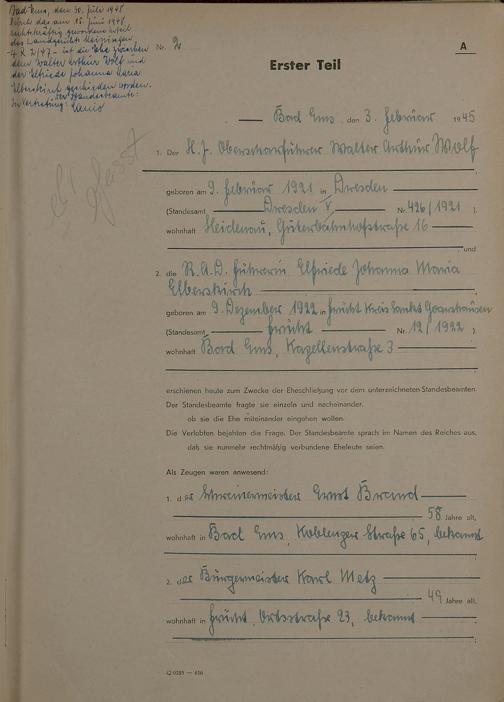 Bad Ems, den 30. Juli 1948
Durch das am 15. Juni 1948
rechtskräftig gewordene Urteil
des Landgerichts
4 R 7/47 - ist die Ehe zwischen
dem Walter Arthur Wolf und
der Elfriede Johanna Maria
Elberskirch geschieden worden.
Der Standesbeamte:
In Vertretung:
Nr. 2
A
Erster Teil
Bad Ems, den 3. Februar 1945
1. Der H.J. Oberscharführer Walter Arthur Wolf
geboren am 9. Februar 1921 in Dresden
(Standesamt Dresden V. Nr. 426/1921 ).
wohnhaft Heidenau, Güterbahnhofstraße 16
und
2. die R.A.D. Führerin Elfriede Johanna Maria
Elberskirch
geboren am 9. Dezember 1922 in Frücht Kreis Sankt Goarshausen
(Standesamt Frücht Nr. 12/1922 ).
wohnhaft Bad Ems, Kapellenstraße 3
erschienen heute zum Zwecke der Eheschließung vor dem unterzeichneten Standesbeamten.
Der Standesbeamte fragte sie einzeln und nacheinander,
ob sie die Ehe miteinander eingehen wollen.
Die Verlobten bejahten die Frage. Der Standesbeamte sprach im Namen des Reiches aus,
daß sie nunmehr rechtmäßig verbundene Eheleute seien.
Als Zeugen waren anwesend:
1. der Ernst Brand
58 Jahre alt,
wohnhaft in Bad Ems, Koblenzer Straße 65, bekannt
2. der Bürgermeister Karl Metz
49 Jahre alt,
wohnhaft in Frücht, Ortsstraße 23, bekannt